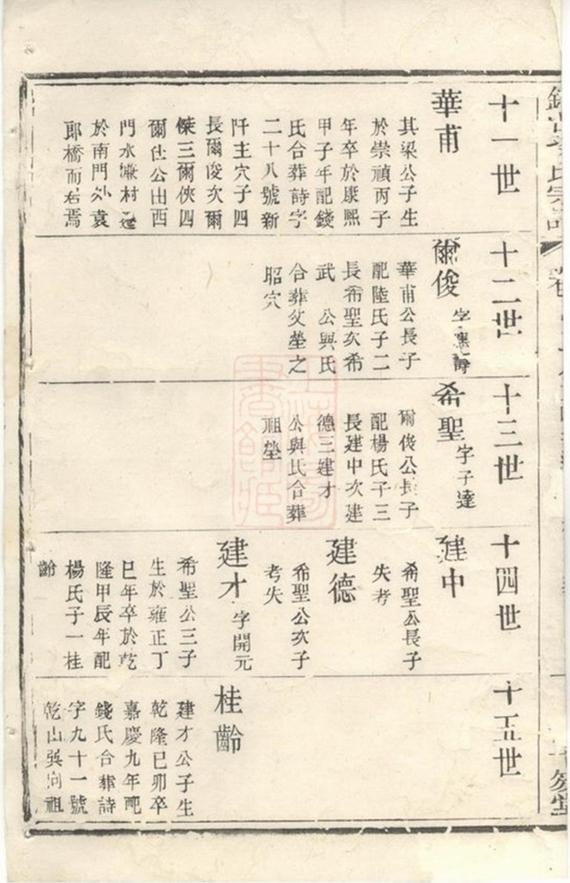 十一世
華甫
其梁公子生
於崇禎丙子
年卒於康熙
甲子年配錢
氏合葬詩字
二十八號新
阡主穴子四
長爾俊次爾
傑三爾俠四
爾仕公出西
門水濂村
於南門外袁
郎橋而右焉
十二世
爾俊
華甫公長子
配陸氏子二
長希聖次希
武 公與氏
合葬父塋之
昭穴
十三世
希聖 字子達
爾俊公長子
配楊氏子三
長建中次建
德三建才
公與氏合葬
祖塋
十四世
建中
希聖公長子
失考
建德
希聖公次子
考失
建才 字開元
希聖公三子
生於雍正丁
巳年卒於乾
隆甲辰年配
楊氏子一桂
齡
十五世
桂齡
建才公子生
乾隆己卯卒
嘉慶九年配
錢氏合葬詩
字九十一號
乾山巽向祖